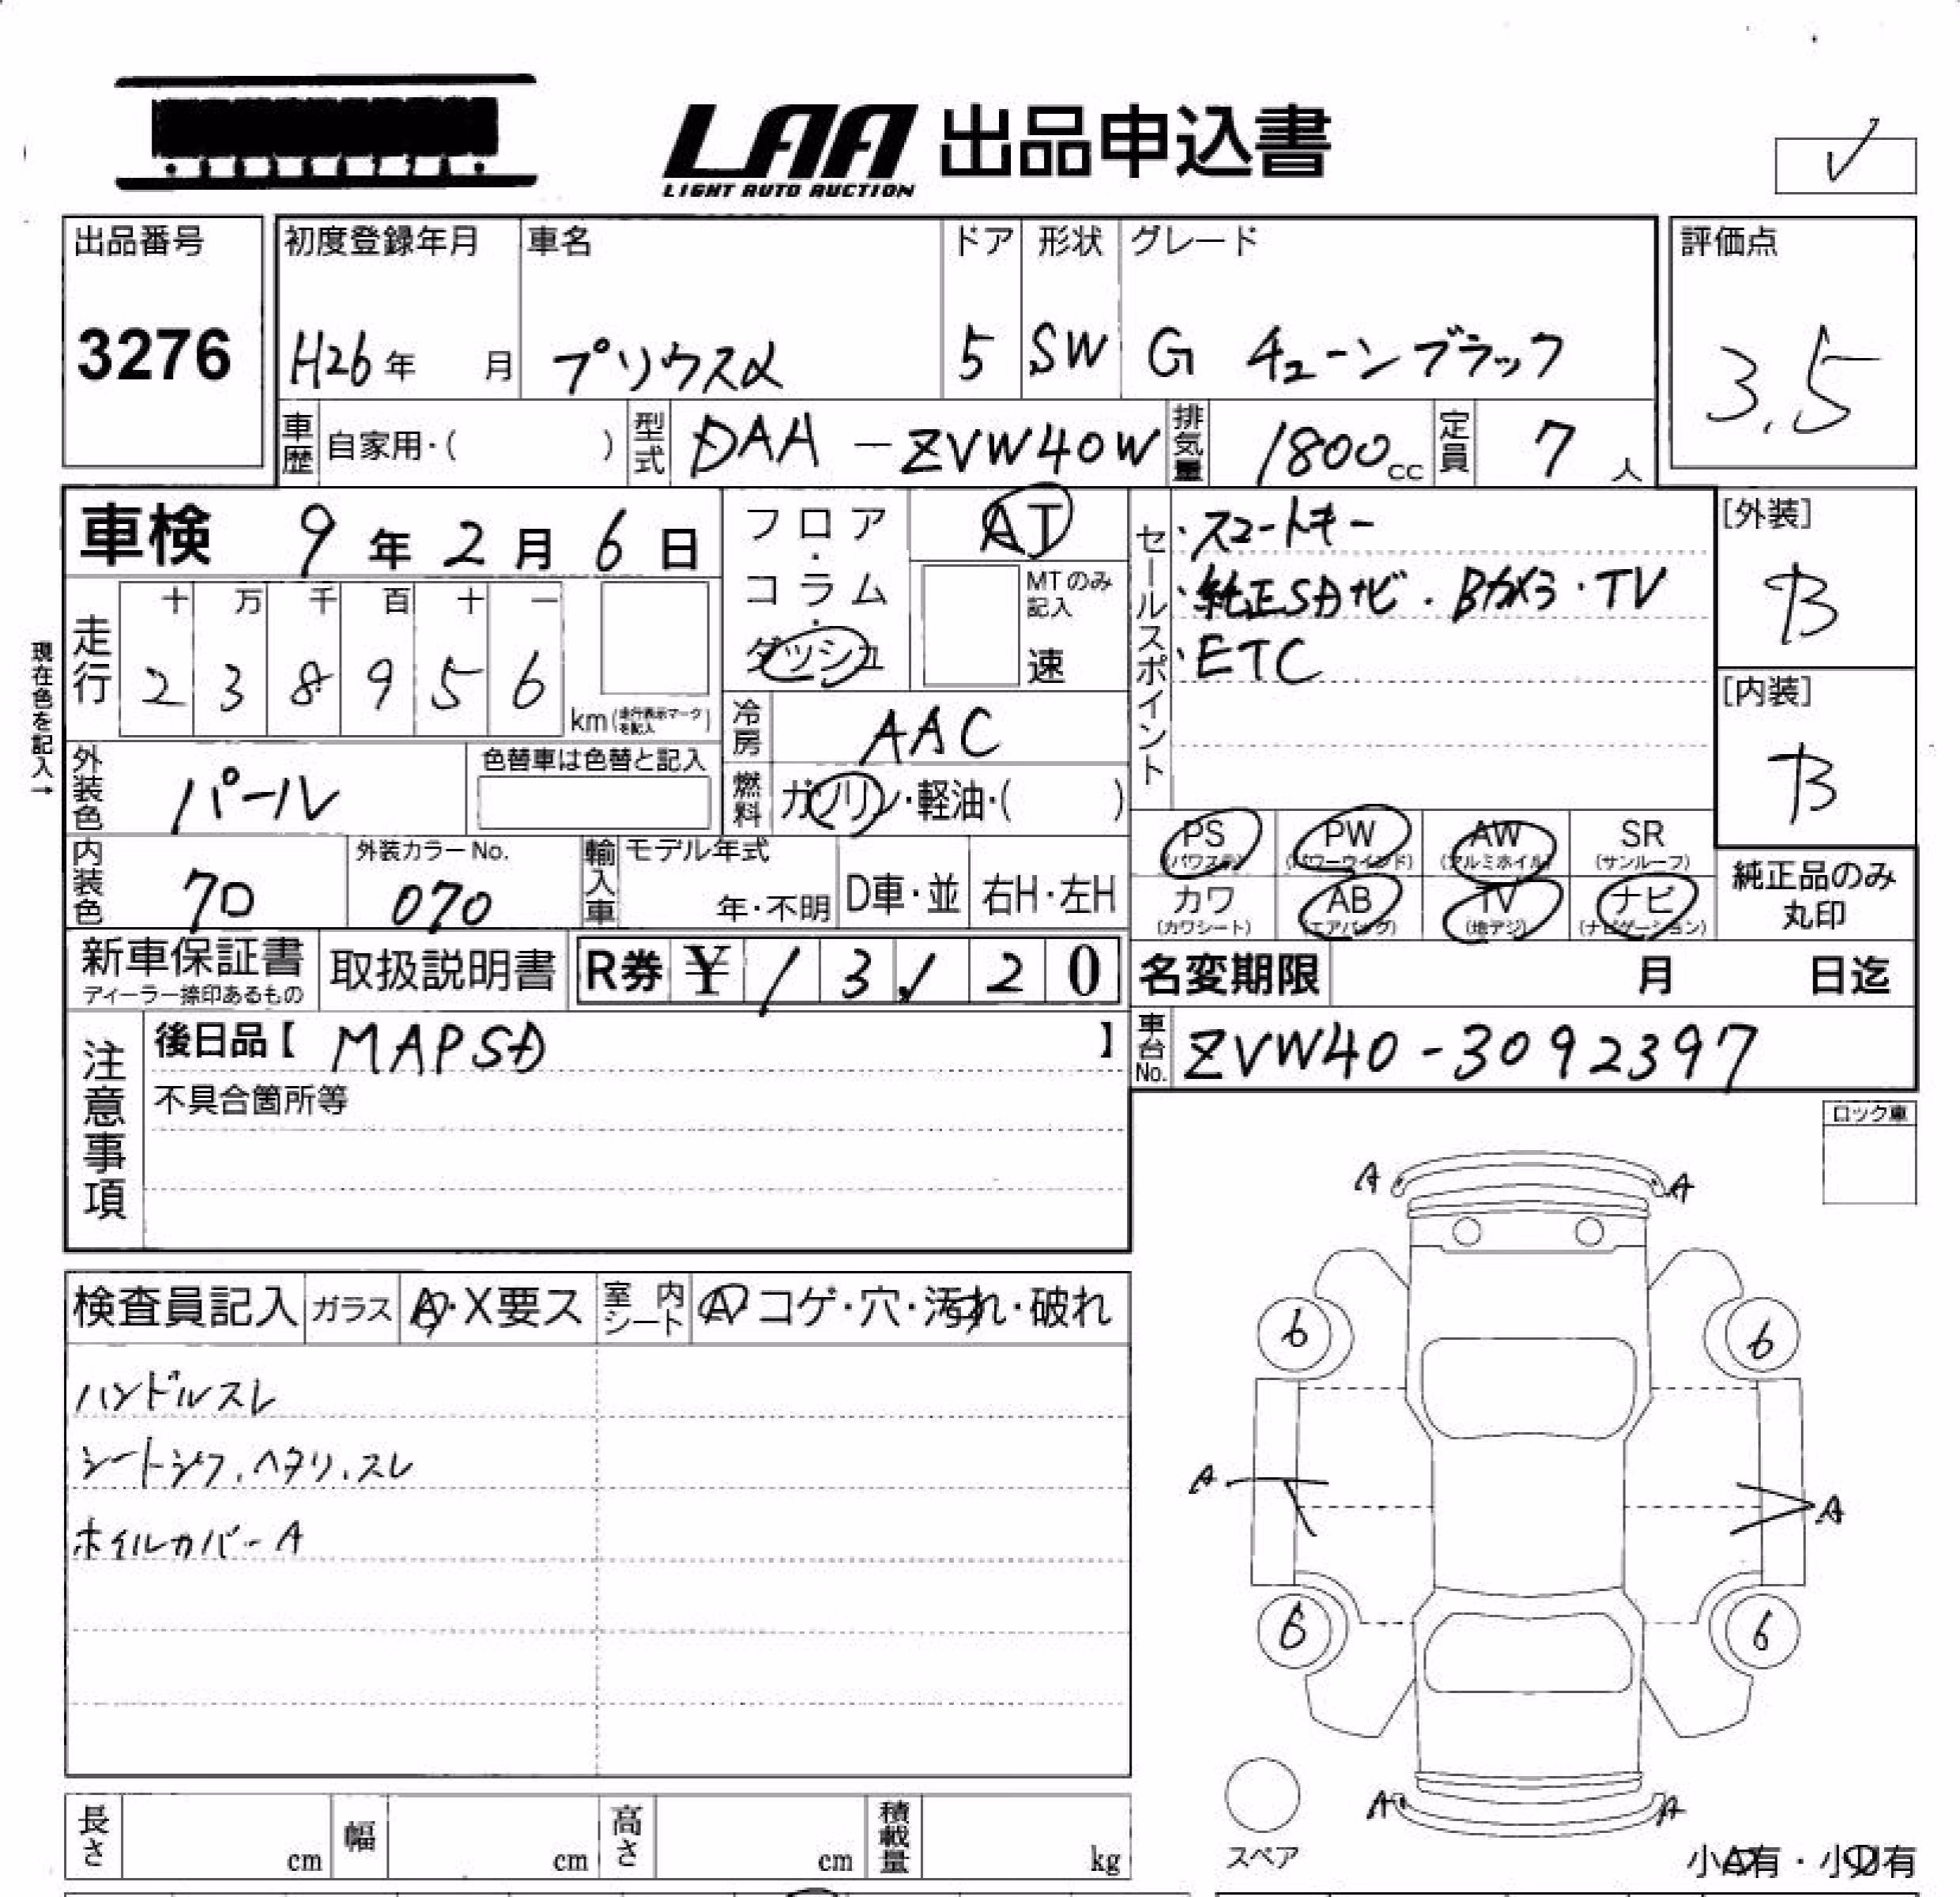 LAA 出品申込書
LIGHT AUTO AUCTION
出品番号
3276
初度登録年月
H26年 月
車名
プリウスα
ドア
5
形状
SW
グレード
G チューンブラック
評価点
3.5
車歴 自家用・( )
型式 DAA-ZVW40W
排気量 1800cc
定員 7人
車検 9年2月6日
フロア・コラム・ダッシュ
AT
MTのみ記入
速
現在色を記入→
走行
十 万 千 百 十 一
2 3 8 9 5 6
km(走行表示マークを記入)
冷房 AAC
燃料 ガソリン・軽油・( )
外装色 パール
色替車は色替と記入
内装色 クロ
外装カラーNo.
070
輸入車 モデル年式
年・不明
D車・並
右H・左H
セールスポイント
・スマートキー
・純正SDナビ・Bカメラ・TV
・ETC
[外装]
B
[内装]
B
PS (パワステ)
PW (パワーウインド)
AW (アルミホイル)
SR (サンルーフ)
カワ (カワシート)
AB (エアバッグ)
TV (地デジ)
ナビ (ナビゲーション)
純正品のみ丸印
新車保証書
ディーラー捺印あるもの
取扱説明書
R券 ¥ 13,120
名変期限 月 日迄
車台No. ZVW40-3092397
注意事項
後日品【 MAPSD 】
不具合箇所等
ロック車
検査員記入
ガラス A・X要ス
室内シート A コゲ・穴・汚れ・破れ
ハンドルスレ
シートシワ、ヘタリ、スレ
ホイルカバーA
A A
6 6
A A
6 6
A A
スペア
小A有・小U有
長さ cm
幅 cm
高さ cm
積載量 kg